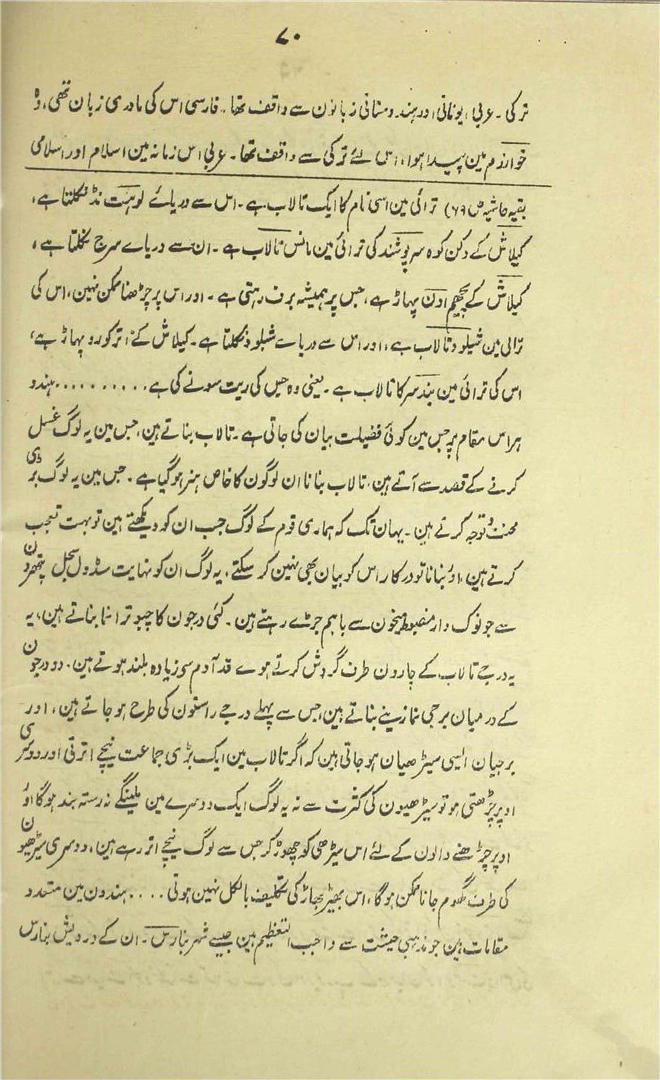 ۷۰
ترکی۔ عربی، یونانی اور ہندوستانی زبانون سے واقف تھا۔ فارسی اس کی مادری زبان تھی، وہ
خوارزم مین پیدا ہوا، اس لئے ترکی سے واقف تھا۔ عربی اس زمانہ مین اسلام اور اسلامی
بقیہ حاشیہ ص ۶۹) ترائی مین اسی نام کا ایک تالاب ہے۔ اس سے دریائے لوہت ننڈ نکلتا ہے،
کیلاش کے دکن کوہ سرپوشند کی ترائی مین مانس تالاب ہے۔ ان سے دریاے سرج نکلتا ہے،
کیلاش کے پچھم ادن پہاڑ ہے، جس پر ہمیشہ برف رہتی ہے۔ اور اس پر چڑھنا ممکن نہین، اس کی
ترائی مین شیلود تالاب ہے، اور اس سے دریاے شبلوذ نکلتا ہے۔ کیلاش کے اتر کورو پہاڑ ہے،
اس کی ترائی مین بند سر کا تالاب ہے۔ یعنی وہ جس کی ریت سونے کی ہے.......... ہندو
ہر اس مقام پر جس مین کوئی فضیلت بیان کی جاتی ہے۔ تالاب بناتے ہین، جس مین یہ لوگ غسل
کرنے کے قصد سے آتے ہین، تالاب بنانا ان لوگون کا خاص ہنر ہوگیا ہے۔ جس مین یہ لوگ بڑی
محنت و توجہ کرتے ہین۔ یہان تک کہ ہماری قوم کے لوگ جب ان کو دیکھتے ہین تو بہت تعجب
کرتے ہین، اور بنانا تو درکار اس کو بیان بھی نہین کر سکتے، یہ لوگ ان کو نہایت سڈول سجل پتھرون
سے جو نوک دار مضبوط میخون سے باہم جڑے رہتے ہین۔ کئی درجون کا چبوترا سا بناتے ہین، یہ
یہ درجے تالاب کے چارون طرف گردش کرتے ہوے قد آدم سی زیادہ بلند ہوتے ہین۔ دو درجون
کے درمیان برجی نما زینے بناتے ہین، جس سے پہلے درجے راستون کی طرح ہو جاتے ہین، اور
برجیان ایسی سیڑھیان ہو جاتی ہین کہ اگر تالاب مین ایک بڑی جماعت نیچے اترتی اور دوسری
اوپر چڑھتی ہو تو سیڑھیون کی کثرت سے نہ یہ لوگ ایک دوسرے مین ملینگے نہ رستہ بند ہوگا اور
اوپر چڑھنے والون کے لئے اس سیڑھی کو چھوڑ کر جس سے لوگ نیچے اتر رہے ہین، دوسری سیڑھیون
کی طرف گھوم جانا ممکن ہوگا، اس بھیڑ بھاڑ کی تکلیف بالکل نہین ہوتی.... ہندون مین متعدد
مقامات ہین جو مذہبی حیثیت سے واجب التعظیم ہین جیسے شہر بنارس۔ ان کے درویش بنارس